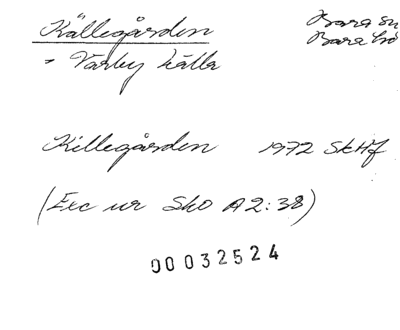 Källegården
= Varby källa
Bara
Bara
Killegården 1972 SkHf
(Exc ur Sko A2:38)
00032524